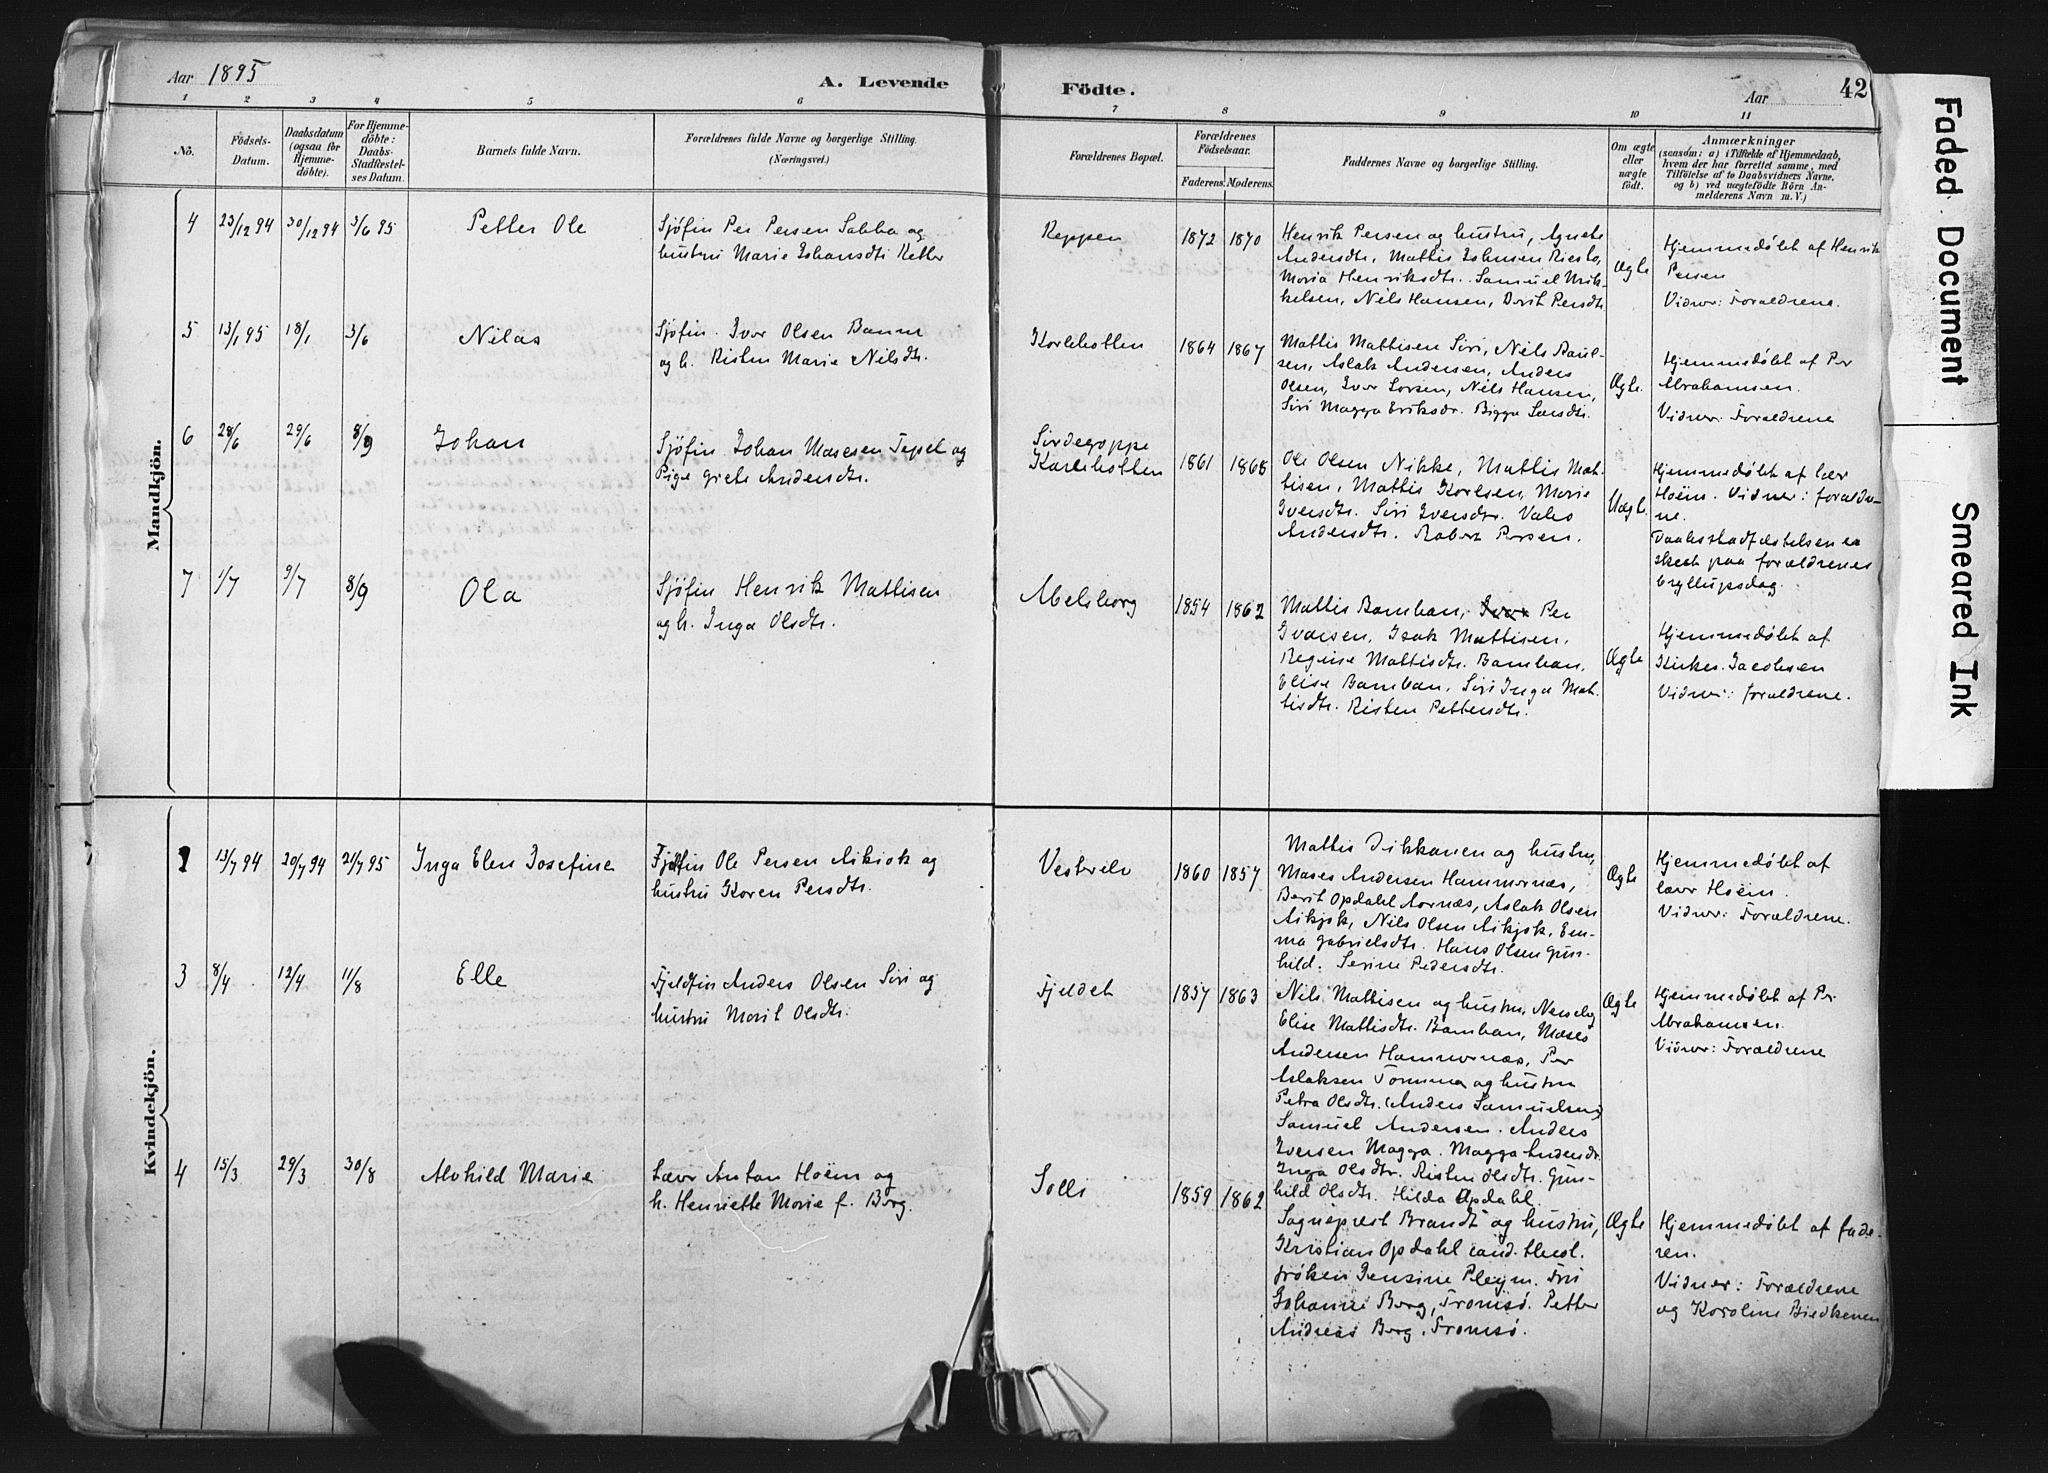 Aar 1895
A. Levende Födte.
Aar
42
1 2 3 4 5 6 7 8 9 10 11
No.
Födsels-Datum.
Daabsdatum (ogsaa for Hjemmedöbte).
For Hjemmedöbte: Daabs-Stadfæstelses Datum.
Barnets fulde Navn.
Forældrenes fulde Navne og borgerlige Stilling.
(Næringsvei.)
Forældrenes Bopæl.
Forældrenes Födselsaar.
Faderens. Moderens.
Faddernes Navne og borgerlige Stilling.
Om ægte eller uægte födt.
Anmærkninger
(saasom: a) i Tilfælde af Hjemmedaab,
hvem der har forrettet samme, med
Tilföielse af to Daabsvidners Navne,
og b) ved uægtefödte Börn Anmelderens Navn m. V.)
Mandkjön.
4 23/12 94 30/12 94 3/6 95 Petter Ole
Sjöfin Per Persen Sabba og
hustru Marie Johansdtr
Reppen 1872 1870
Henrik Persen og hustru, Agnete
Andersdtr, Mattis Johnsen
Maria Henriksdtr. Samuel Mik-
kelsen, Nils Hansen, Berit Persdtr
Ægte
Hjemmedöbt af Henrik
Persen
Vidner: Forældrene.
5 13/1 95 18/1 3/6 Nilas
Sjöfin. Iver Olsen
og h. Risten Marie Nilsdtr.
1864 1867
Mattis Mattisen Siri, Nils Paul-
sen, Aslak Andersen, Anders
Olsen, Iver Larsen, Nils Hansen,
Siri Magga Eriksdr. Bigga Larsdtr.
Ægte.
Hjemmedöbt af Per
Abrahamsen.
Vidner: Forældrene
6 28/6 29/6 8/9 Johan
Sjöfin Johan Mosesen og
Pige Grete Andersdtr.
1861
Ole Olsen Nikke, Mattis Mat-
tisen, Mattis Karlsen, Marie
Iversdtr. Siri Iversdtr.
Andersdtr. Robert Persen.
Uægt.
Hjemmedöbt af lær
Hoëm. Vidner: foraeldre-
ne.
Daabsstadfæstelsen er
skeet paa forældrenes
bryllupsdag.
7 1/7 9/7 8/9 Ola
Sjöfin Henrik Mattisen
og h. Inga Olsdtr.
Abelsborg 1854 1862
Mattis Banban, Per
Ivarsen, Isak Mattisen,
Regine Mattisdtr. Banban,
Elise Banban, Siri Inga Mat-
tisdtr. Risten Pettersdtr.
Ægte
Hjemmedöbt af
Kirkes. Jacobsen
Vidner: forældrene.
Kvindekjön.
1 13/7 94 20/7 94 21/7 95 Inga Elen Josefine
Fjelfin Ole Persen Aikiok og
hustru Karen Persdtr.
Vesterelv 1860 1857
Mattis Dikkanen og hustru,
Moses Andersen Hammernæs,
Berit Opdahl Aornæs, Aslak Olsen
Aikjok, Nils Olsen Aikjok, Em-
ma Gabrielsdtr. Hans Olsen Gun-
hild. Serine Pedersdtr.
Ægte
Hjemmedöbt af
lærer Hoëm.
Vidner: Forældrene.
3 8/4 12/4 11/8 Elle
Fjeldfin Anders Olsen Siri og
hustru Marit Olsdtr.
Fjeldet 1857 1863
Nils Mattisen og hustru, Nesseby
Elise Mattisdtr. Banban, Moses
Andersen Hammernæs, Per
Aslaksen Tomma og hustru
Petra Olsdtr. (Anders Samuelsen)
Samuel Andersen. Anders
Iversen Magga. Magga Andersdr.
Inga Olsdtr. Risten Olsdtr. Gun-
hild Olsdtr. Hilda Opdahl.
Ægte
Hjemmedöbt af Per
Abrahamsen.
Vidner: Forældrene
4 15/3 29/3 30/8 Alvhild Marie
Lærer Anton Hoëm og
h. Henriette Marie f. Borg.
Solli 1859 1862
Sognepræst Brandt og hustru,
Kristian Opdahl cand. theol.
fröken Jensine Pleym. Fru
Johanne Borg, Tromsö. Petter
Andreas Borg, Tromsö.
Ægte
Hjemmedöbt af fade-
ren.
Vidner: Forældrene
og Karoline
Faded Document
Smeared Ink